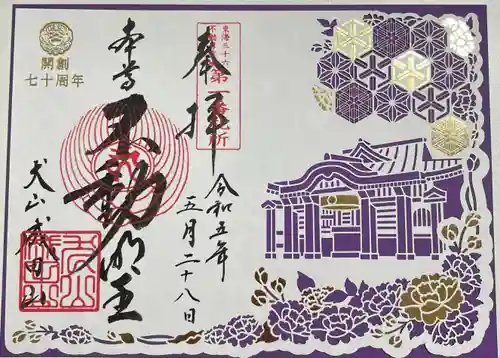 奉拝
東海三十六
不動尊
第一番札所
令和五年
五月二十八日
本尊
不動明王
犬山成田山
開創
七十周年